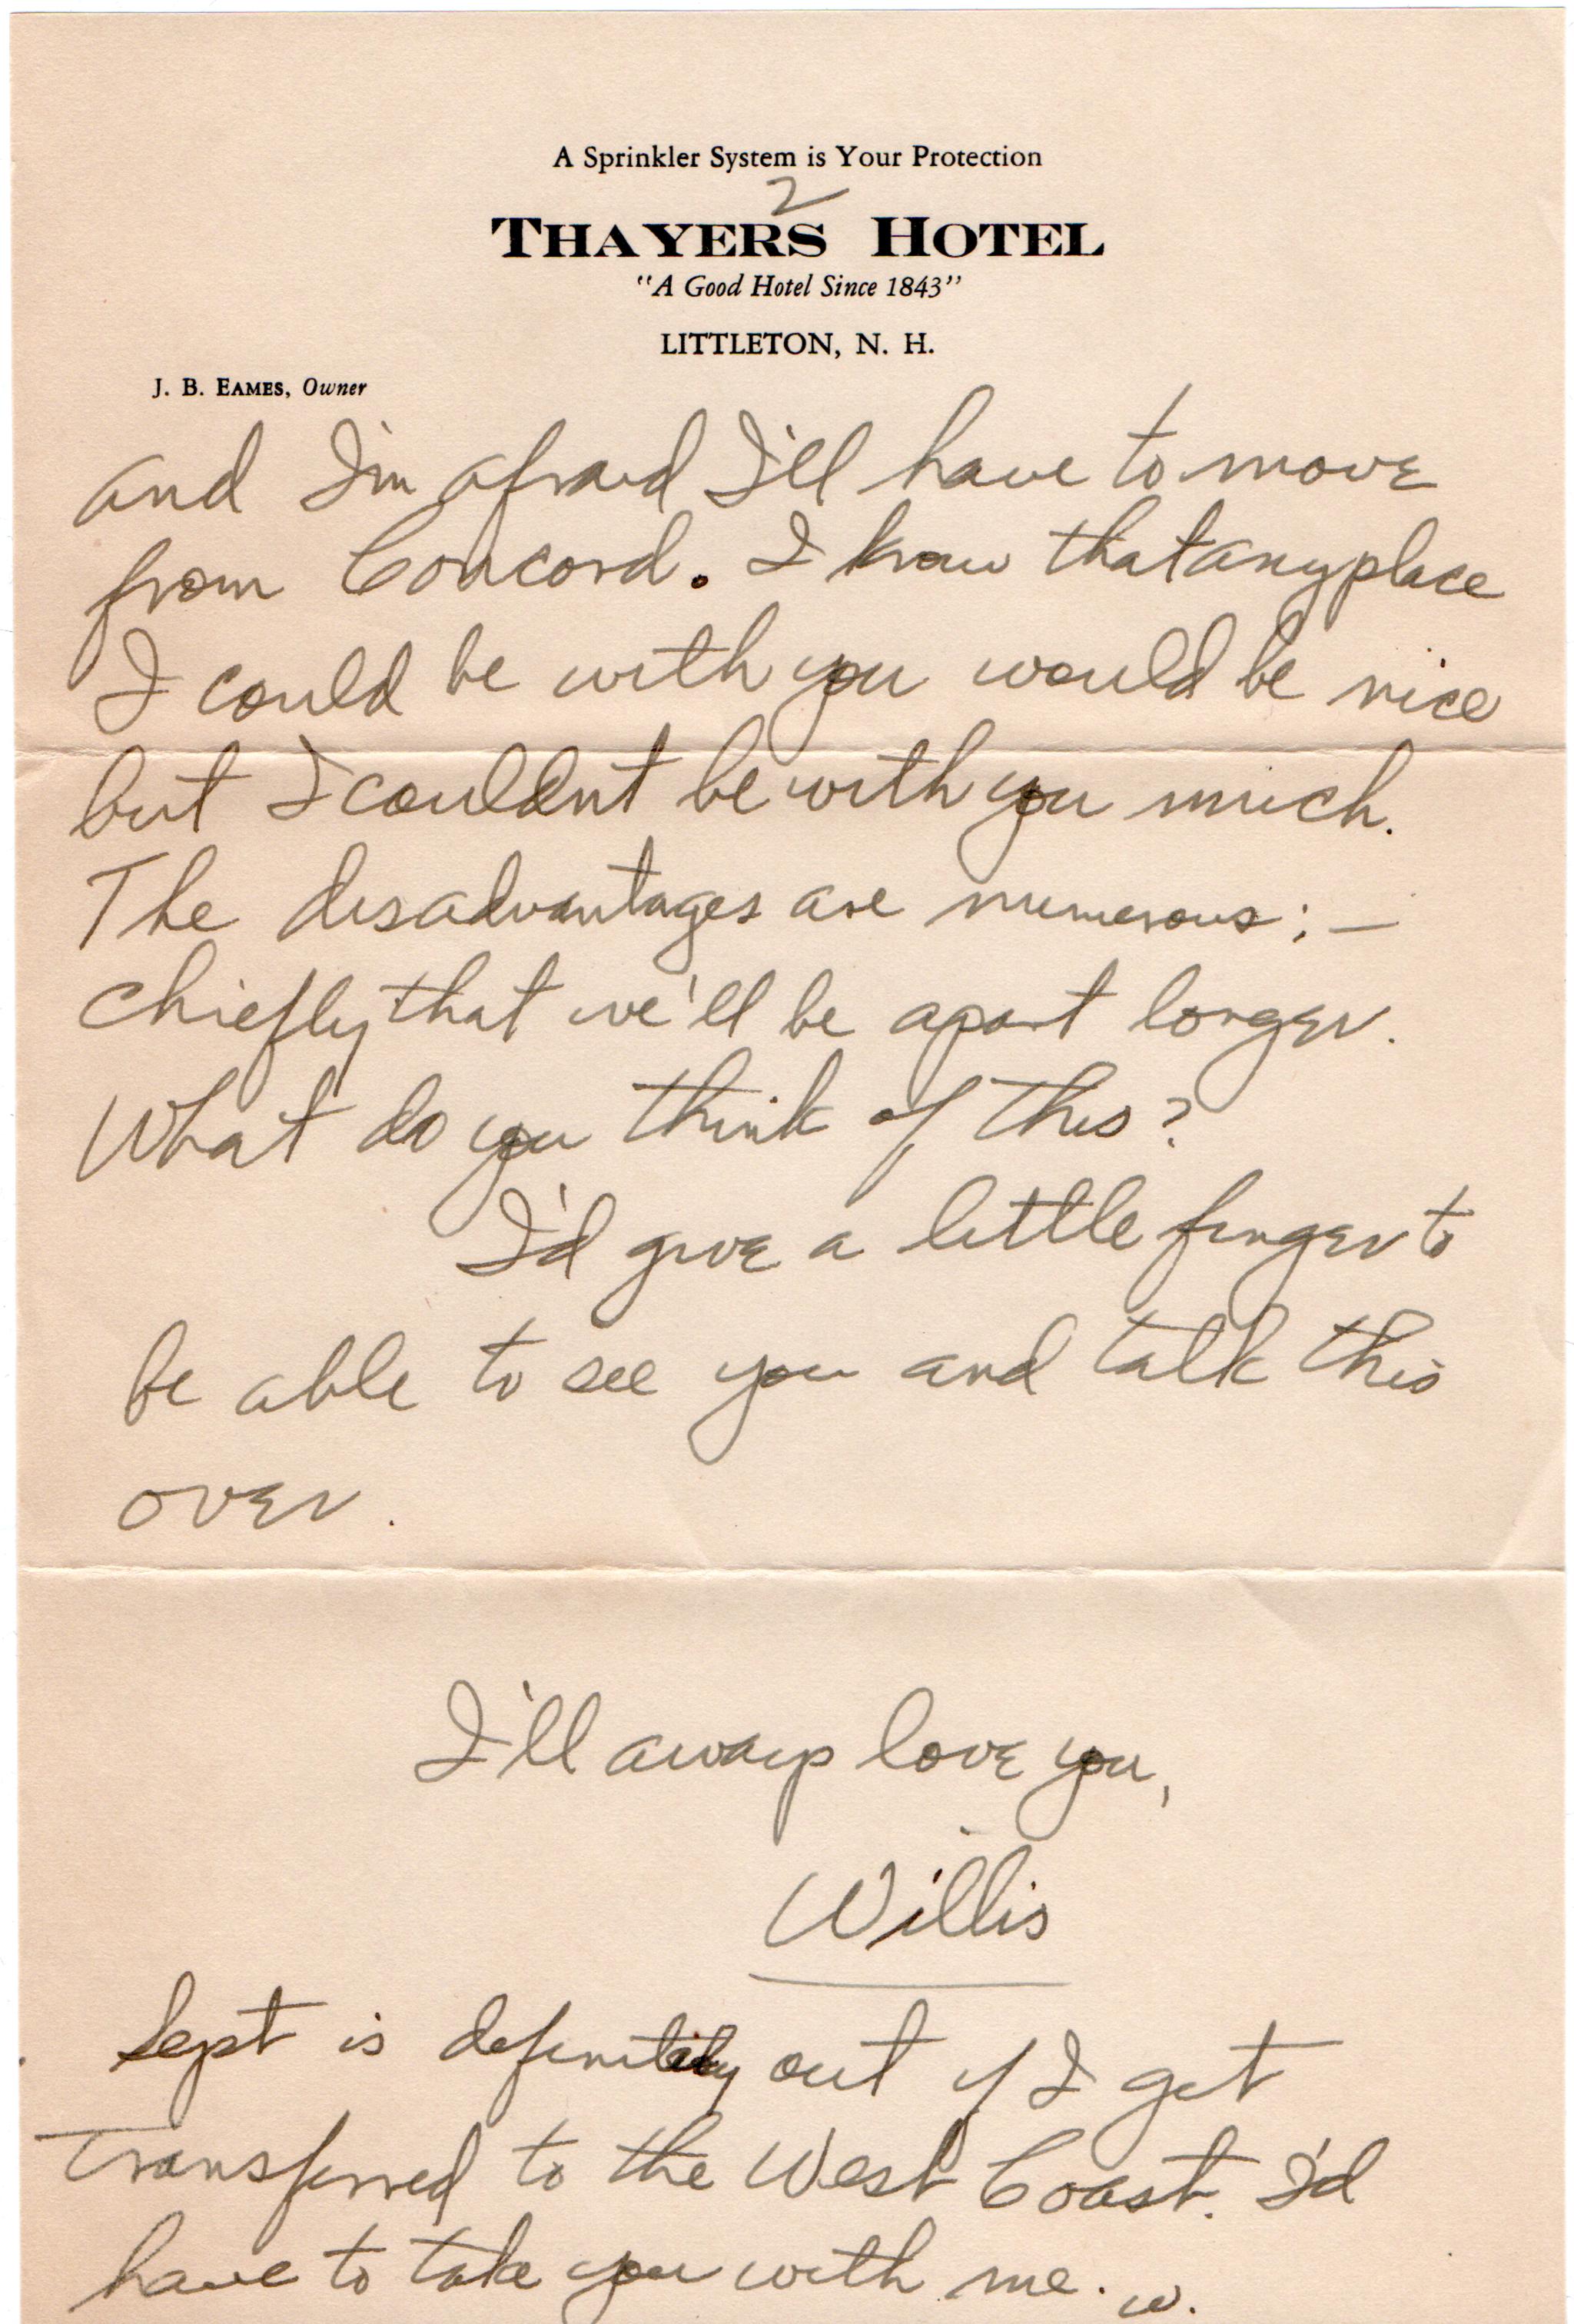 A Sprinkler System is Your Protection
2
THAYERS HOTEL
"A Good Hotel Since 1843"
LITTLETON, N. H.
J. B. EAMES, Owner
and I'm afraid I'll have to move
from Concord. I know that any place
I could be with you would be nice
but I couldn't be with you much.
The disadvantages are numerous; —
chiefly that we'll be apart longer.
What do you think of this?
I'd give a little finger to
be able to see you and talk this
over.
I'll aways love you,
Willis
Sept is definitely out if I get
transferred to the West Coast. I'd
have to take you with me. w.